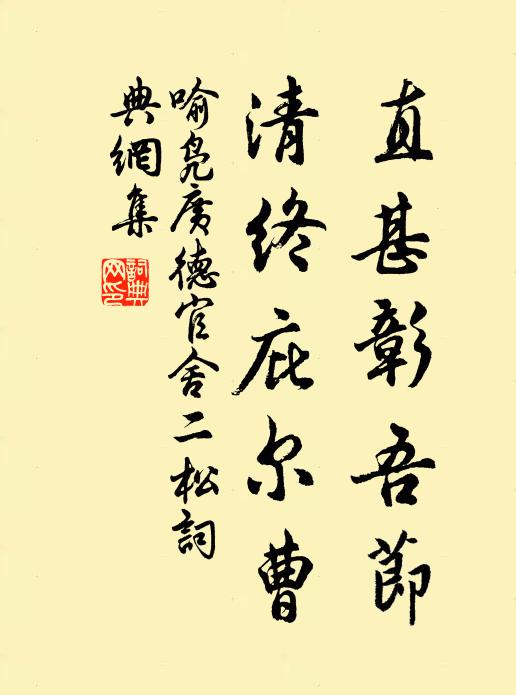 直甚彰吾節
清終庇尔曹
喻凫廣德官舍二松詞
典網集
詞典網印